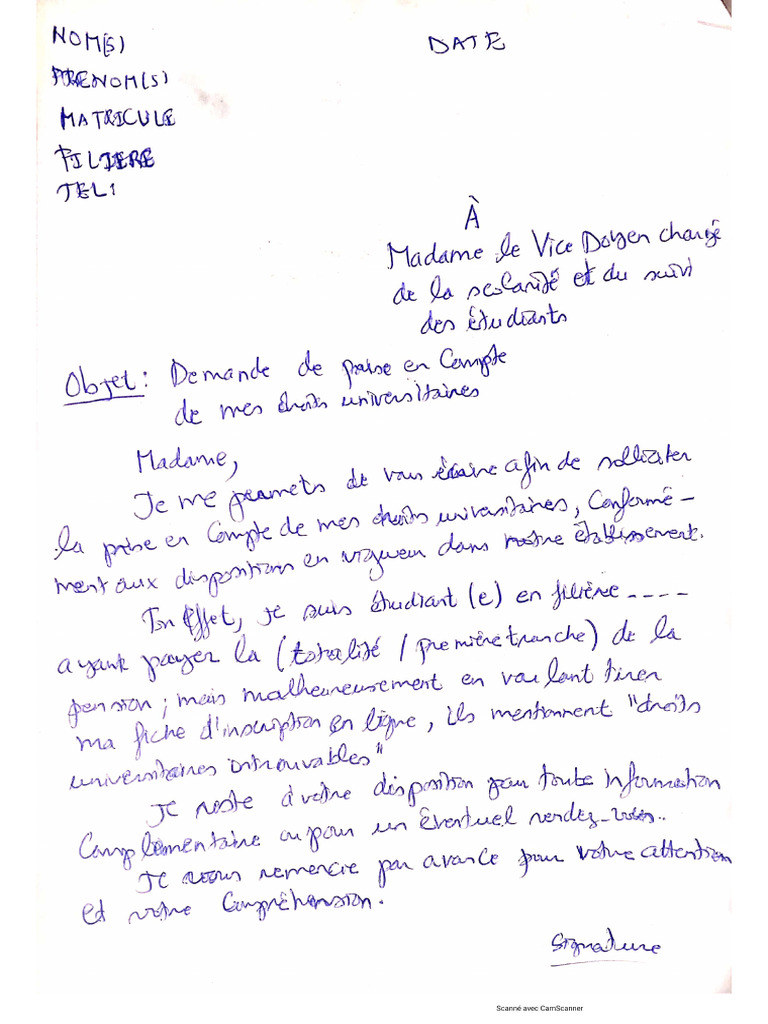 NOM(S) DATE
PRENOM(S)
MATRICULE
FILIERE
TEL:
À
Madame le Vice Doyen chargé
de la scolarité et du suivi
des étudiants
Objet : Demande de prise en Compte
de mes droits universitaires
Madame,
Je me permets de vous écrire afin de solliciter
la prise en Compte de mes droits universitaires, Conformé-
ment aux dispositions en vigueur dans notre établissement.
En Effet, je suis étudiant (e) en filière ----
ayant payer la (totalité / première tranche) de la
pension ; mais malheureusement en voulant tirer
ma fiche d'inscription en ligne, ils mentionnent "droits
universitaires introuvables"
Je reste à votre disposition pour toute information
Complementaire ou pour un Éventuel rendez-vous.
Je vous remercie par avance pour votre attention
Et votre Compréhension.
Signature
Scanné avec CamScanner